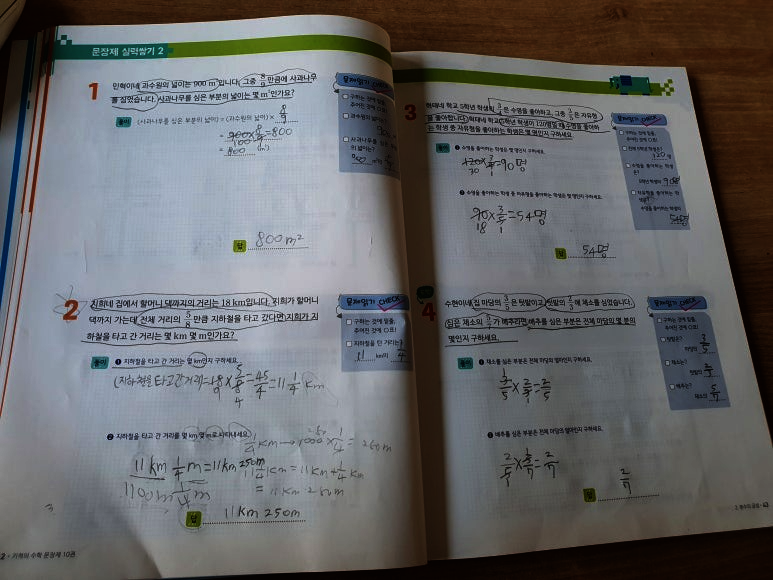 문장제 실력쌓기 2
1
민혁이네 과수원의 넓이는 900 m²입니다. 그중 8/9만큼에 사과나무
를 심었습니다. 사과나무를 심은 부분의 넓이는 몇 m²인가요?
풀이 (사과나무를 심은 부분의 넓이) = (과수원의 넓이) × 8/9
= 900 × 8/9 = 800
= 800 (m²)
답 800m²
문제읽기 CHECK
구하는 것에 밑줄,
주어진 것에 ○표!
과수원의 넓이는?
사과나무를 심은 부분
의 넓이는?
2
지희네 집에서 할머니 댁까지의 거리는 18 km입니다. 지희가 할머니
댁까지 가는데 전체 거리의 5/8만큼 지하철을 타고 갔다면 지희가 지
하철을 타고 간 거리는 몇 km 몇 m인가요?
풀이 ❶ 지하철을 타고 간 거리는 몇 km인지 구하세요.
(지하철을 타고 간 거리) = 18 × 5/8 = 45/4 = 11 1/4 km
❷ 지하철을 타고 간 거리를 몇 km 몇 m로 나타내세요.
1/4 km → 1000 × 1/4 = 250m
11km 1/4 m = 11km 250m
11 1/4 km = 11km + 1/4 km
= 11km 250m
답 11km 250m
문제읽기 CHECK
구하는 것에 밑줄,
주어진 것에 ○표!
지하철을 탄 거리는?
2 · 기적의 수학 문장제 10권
3
혁태네 학교 5학년 학생의 3/4은 수영을 좋아하고, 그중 3/5은 자유형
을 좋아합니다. 혁태네 학교 5학년 학생이 120명일 때 수영을 좋아하
는 학생 중 자유형을 좋아하는 학생은 몇 명인지 구하세요.
풀이 ❶ 수영을 좋아하는 학생은 몇 명인지 구하세요.
120 × 3/4 = 90명
❷ 수영을 좋아하는 학생 중 자유형을 좋아하는 학생은 몇 명인지 구하세요.
90 × 3/5 = 54명
답 54명
문제읽기 CHECK
구하는 것에 밑줄,
주어진 것에 ○표!
전체 5학년 학생은?
120명
수영을 좋아하는 학생
은?
4
수현이네 집 마당의 3/5은 텃밭이고, 텃밭의 2/3에 채소를 심었습니다.
심은 채소의 5/7가 배추라면 배추를 심은 부분은 전체 마당의 몇 분의
몇인지 구하세요.
풀이 ❶ 채소를 심은 부분은 전체 마당의 얼마인지 구하세요.
3/5 × 2/3 = 2/5
❷ 배추를 심은 부분은 전체 마당의 얼마인지 구하세요.
2/5 × 5/7 = 2/7
답 2/7
문제읽기 CHECK
구하는 것에 밑줄,
주어진 것에 ○표!
텃밭은?
마당의 3/5
채소는?
텃밭의 2/3
배추는?
채소의 5/7
2. 분수의 곱셈 · 43